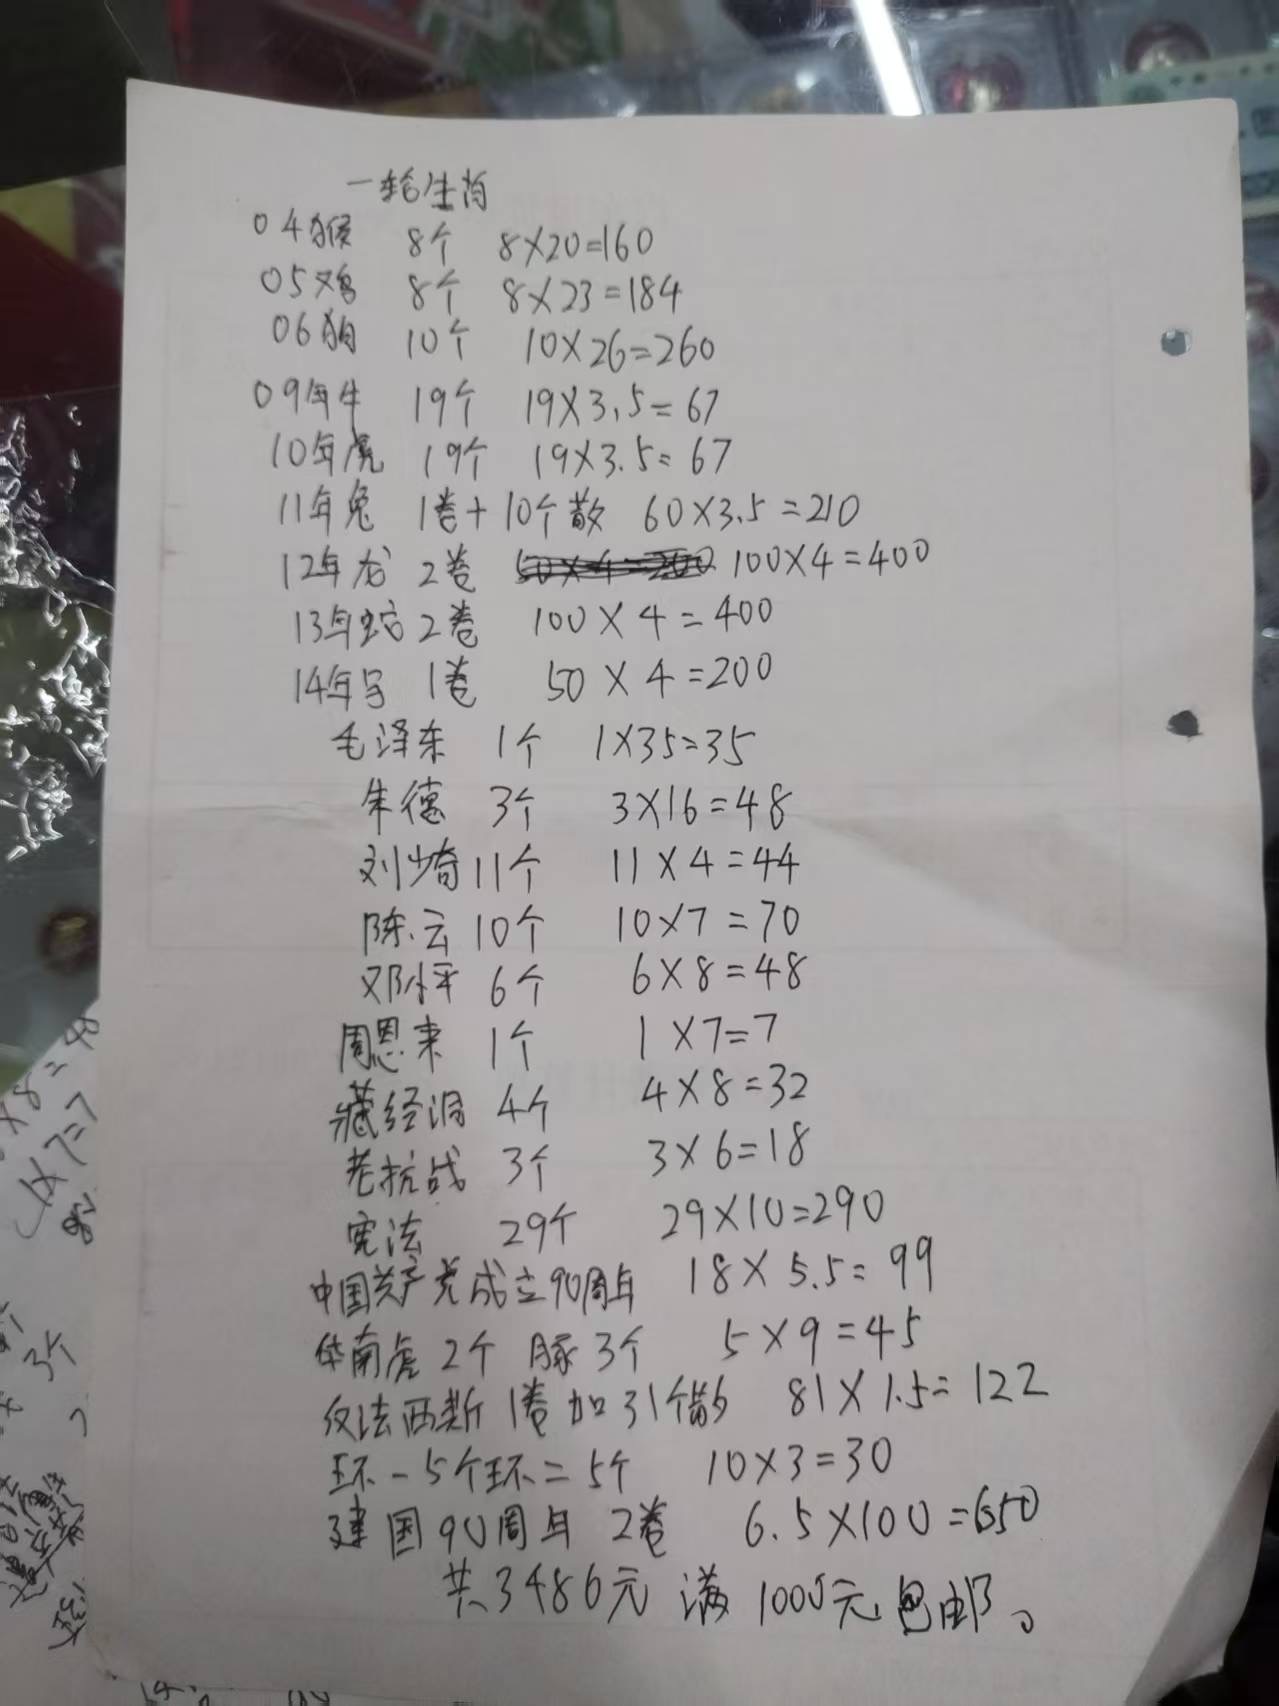 一轮生肖
04猴 8个 8×20=160
05鸡 8个 8×23=184
06狗 10个 10×26=260
09年牛 19个 19×3.5=67
10年虎 19个 19×3.5=67
11年兔 1卷+10个散 60×3.5=210
12年龙 2卷 50×4=200 100×4=400
13年蛇 2卷 100×4=400
14年马 1卷 50×4=200
毛泽东 1个 1×35=35
朱德 3个 3×16=48
刘少奇 11个 11×4=44
陈云 10个 10×7=70
邓小平 6个 6×8=48
周恩来 1个 1×7=7
藏经洞 4个 4×8=32
老抗战 3个 3×6=18
宪法 29个 29×10=290
中国共产党成立90周年 18×5.5=99
华南虎 2个 豚 3个 5×9=45
反法西斯 1卷加31个散 81×1.5=122
环一5个环二5个 10×3=30
建国90周年 2卷 6.5×100=650
共3486元 满1000元包邮。
×8=48
1×7=7
3个